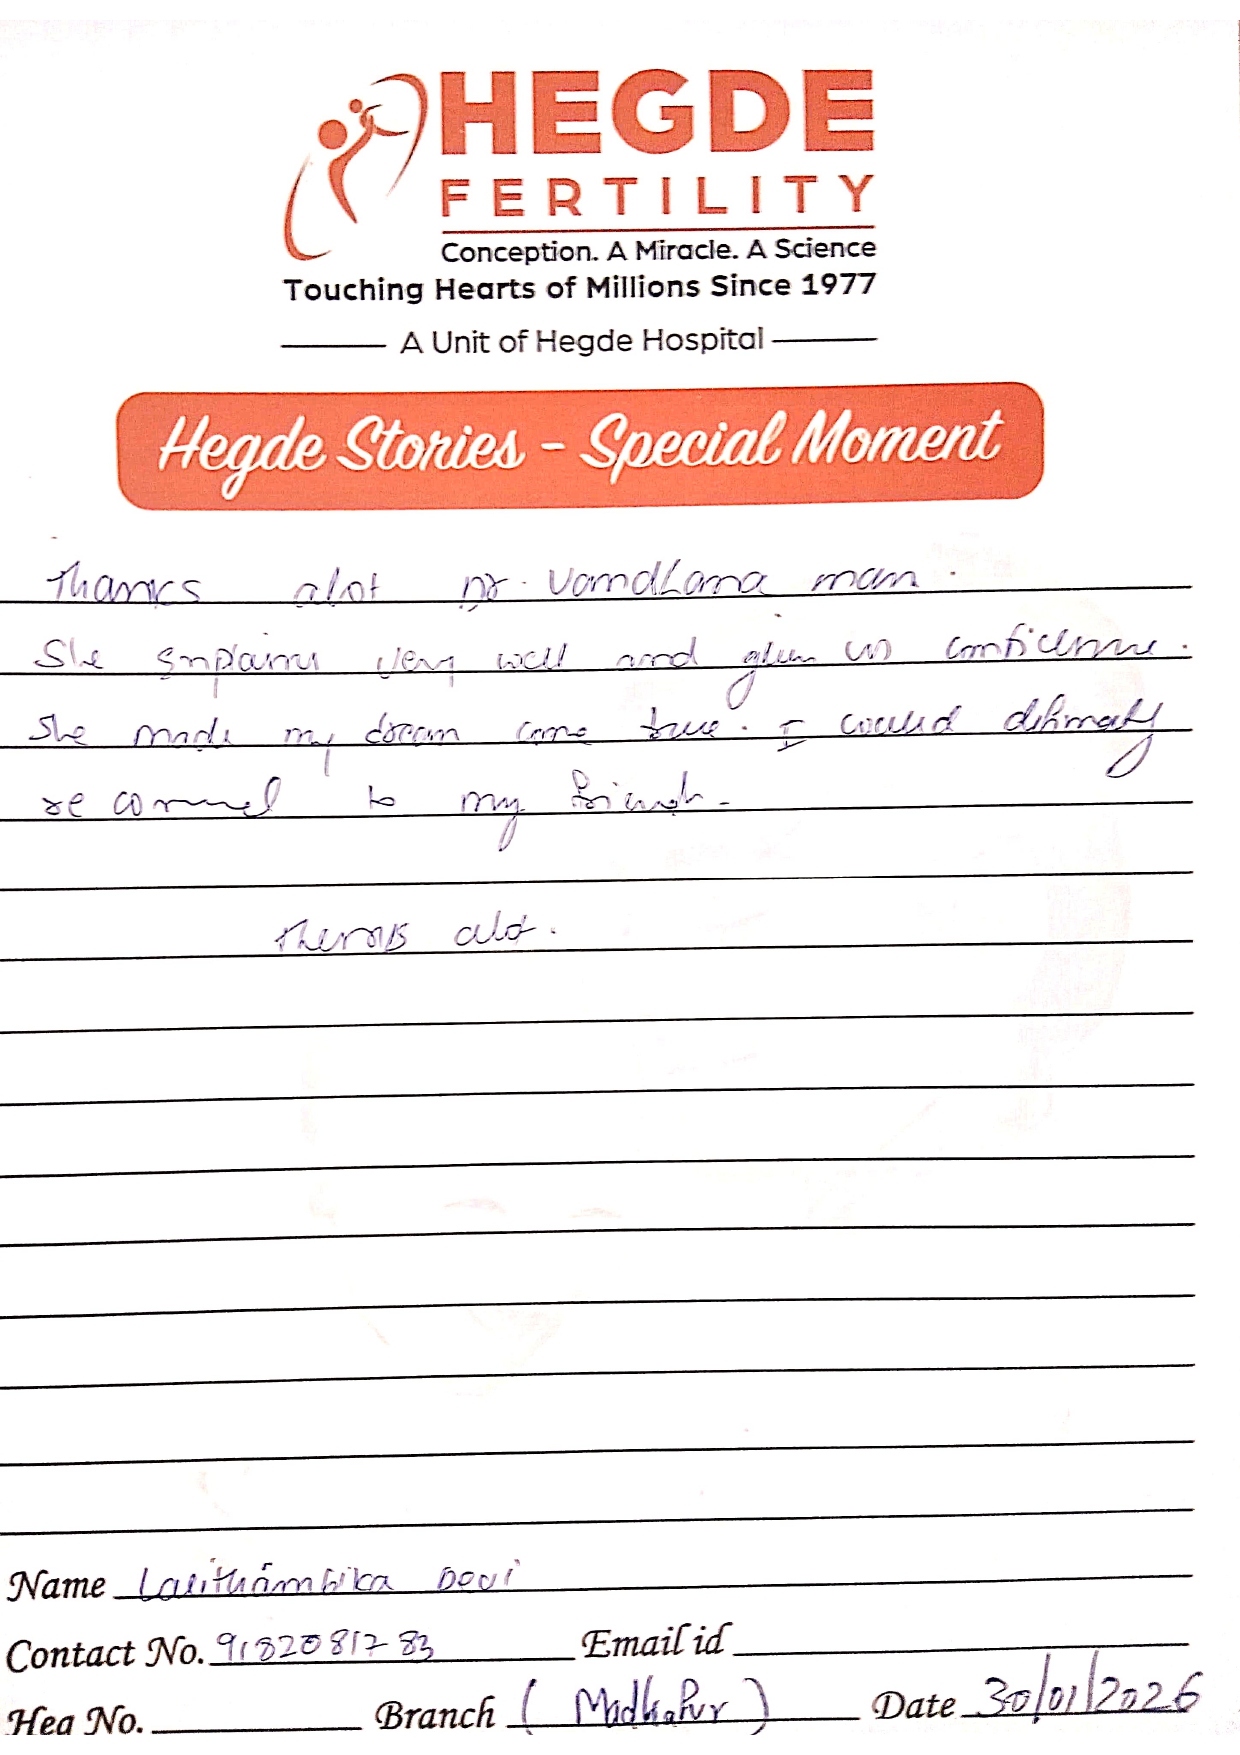 HEGDE
FERTILITY
Conception. A Miracle. A Science
Touching Hearts of Millions Since 1977
A Unit of Hegde Hospital
Hegde Stories - Special Moment
Thanks alot Dr. Vandhana mam.
She explains very well and given us confidence.
She made my dream come true. I would definately
recommed to my friends.
Thanks alot.
Name Lalithambika Devi
Contact No. 9182081783 Email id
Heg No. Branch ( Madhapur ) Date 30/01/2026